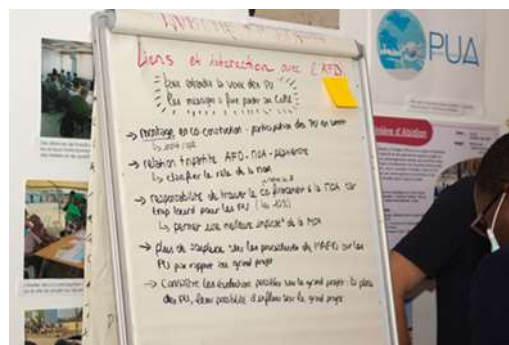 Liens et interaction avec l'AFD
Faire entendre la voix des PU
les messages à faire passer au CoPil
→ montage en co-construction - participation des PU en amont
→ relation tripartite AFD - MOA - plateforme
↳ clarifier le rôle de la MOA
→ responsabilité de trouver le co financement à la MOA car
trop lourd pour les PU (10%)
↳ permet une meilleure implic° de la MOA
→ plus de souplesse sur les procédures de l'AFD sur les
PU par rapport au grand projet
→ Connaître les évolutions possibles sur le grand projet : la place
des PU, leur possibilité d'influer sur le grand projet.
PUA
d'Abidjan